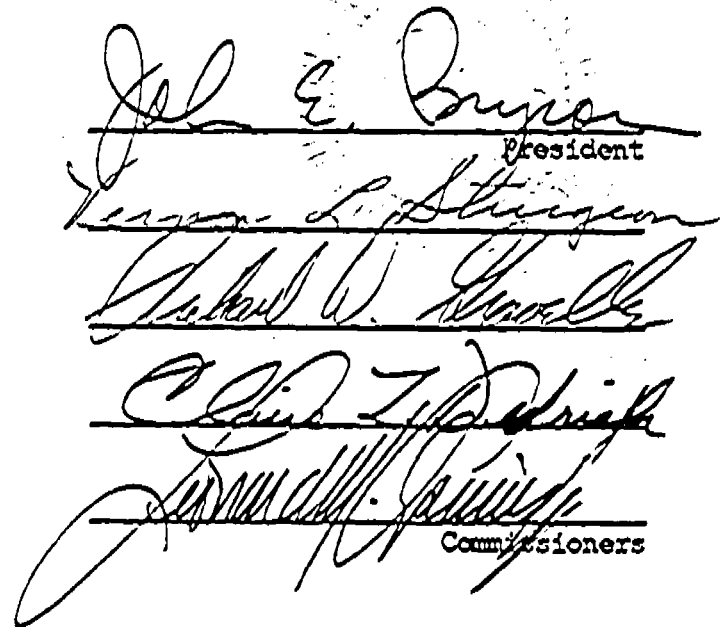 John E. Bryson
President
Vernon L. Sturgeon
Richard D. Gravelle
Claire T. Dedrick
Leonard M. Grimes, Jr.
Commissioners